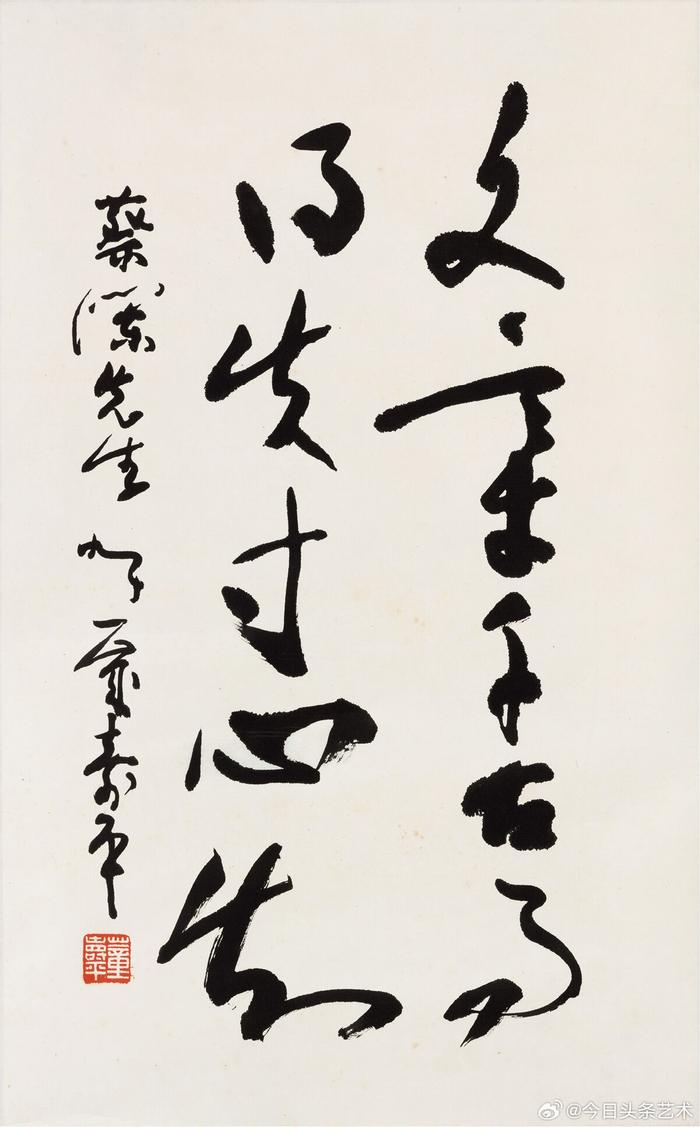 文章千古事
得失寸心知
蔡瀾先生 董壽平
董壽平
@今日头条艺术